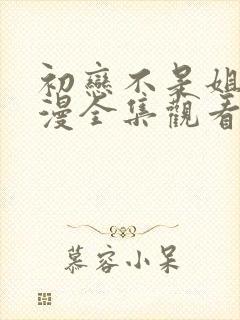 初戀不呆姐
漫全集觀看
慕容小呆